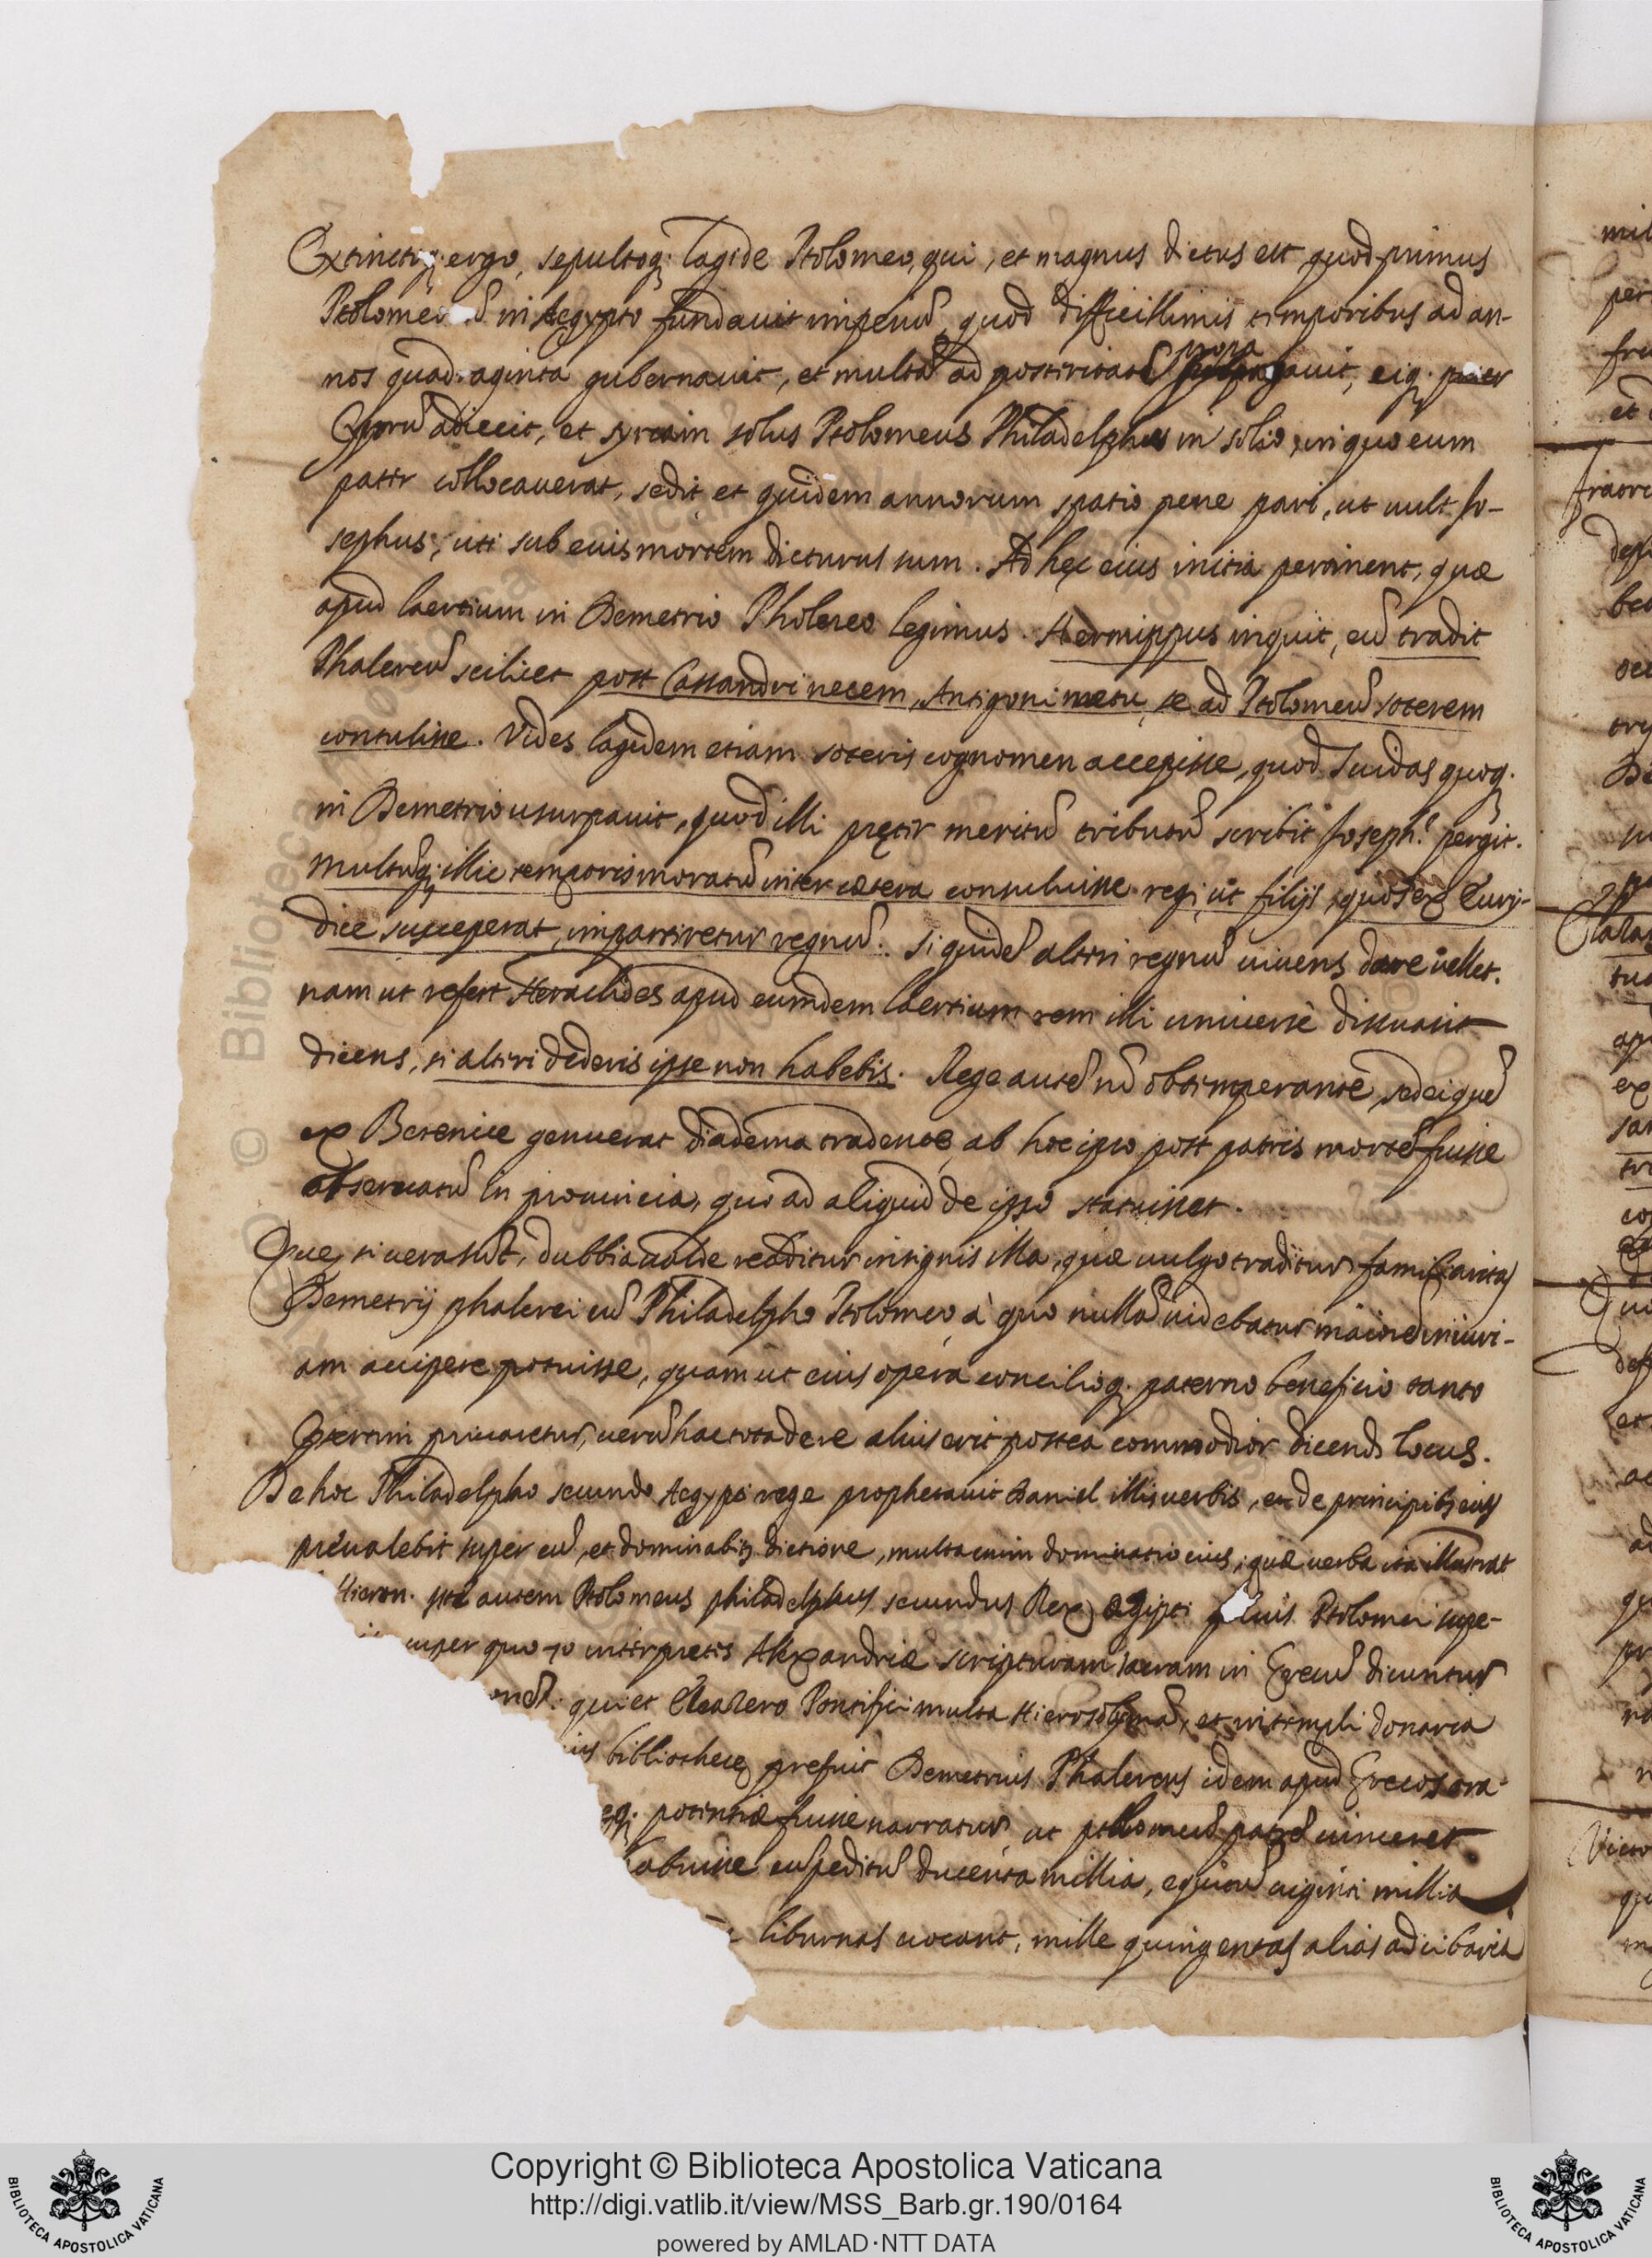 Extinctoq; ergo, sepultoq; Lagide Ptolomeo, qui, et magnus dictus est, quod primus
Ptolomeo in Aegypto fundauit imperiũ, quod difficillimis temporibus ad an-
nos quadraginta gubernauit, et multa ad posteritatẽ propagauit, eiq. prater
Cyprũ adiecit, et syriam solus Ptolomeus Philadelphus in solio, in quo eum
pater collocauerat, sedit et quidem annorum spatio pene pari, ut uult Jo-
sephus, uti sub euis mortem dicturus sum. Ad hęc eius initia pertinent, quæ
apud Laertium in Demetrio Phalereo legimus. Hermippus inquit, eũ tradit
Phalereũ scilicet post Cassandri necem, Antigoni metu, se ad Ptolomeũ soterem
contulisse. Vides lagidem etiam soteris cognomen accepisse, quod Suidas quoq.
in Demetrio usurpauit, quod illi pręter meritũ tributũ scribit Joseph. pergit.
Multũq; illic temporis moratũ inter cætera consuluisse regi, ut filijs, quos ex Eury-
dice susceperat, impartiretur regnũ. Si quidẽ alteri regnũ uiuens dare uellet.
nam ut refert Heraclides apud eumdem Laertium rem illi uniuerse dissuasit
dicens, si alteri dederis ipse non habebis. Rege autẽ nũ obtemperante, sed ei quẽ
ex Berenice genuerat diadema tradente, ab hoc ipso post patris mortẽ fuisse
obseruatũ in prouincia, quo ad aliquid de ipso statuisset.
Quę si uera sũt, dubbia ualde redditur insignis illa, quæ uulgo traditur familiaritas
Demetrij phalerei cũ Philadelpho Ptolomeo, à quo nullã uidebatur maiorẽ iniuri-
am accipere potuisse, quam ut eius opera conciliq. paterno beneficio tanto
priuaretur, uerũ hac tota de re alius erit postea commodior dicendi locus.
De hoc Philadelpho secundo Aegypti rege prophetauit Daniel illis uerbis, et de principibs eius
preualebit super eũ, et dominabitᵣ dictione, multa enim dominatio eius, quæ uerba ita illustrat
Hieron. iste autem Ptolomeus philadelphus secundus Rex ægipti filius Ptolomei supe-
super quo 70 interpretes Alexandriæ scripturam sacram in Grecũ dicuntur
qui et Eleazero Pontifici multa Hierosolymã, et in templi donaria
bibliothecę prefuit Demetrius Phalereus idem apud Grecos ora-
potentiæ fuisse narratur ut ptolomeũ patrẽ uinceret
habuisse expeditũ ducenta millia, equitũ uiginti millia
liburnas uocant, mille quingentas alias ad cibaria
Copyright © Biblioteca Apostolica Vaticana
http://digi.vatlib.it/view/MSS_Barb.gr.190/0164
powered by AMLAD·NTT DATA
BIBLIOTECA APOSTOLICA VATICANA
BIBLIOTECA APOSTOLICA VATICANA